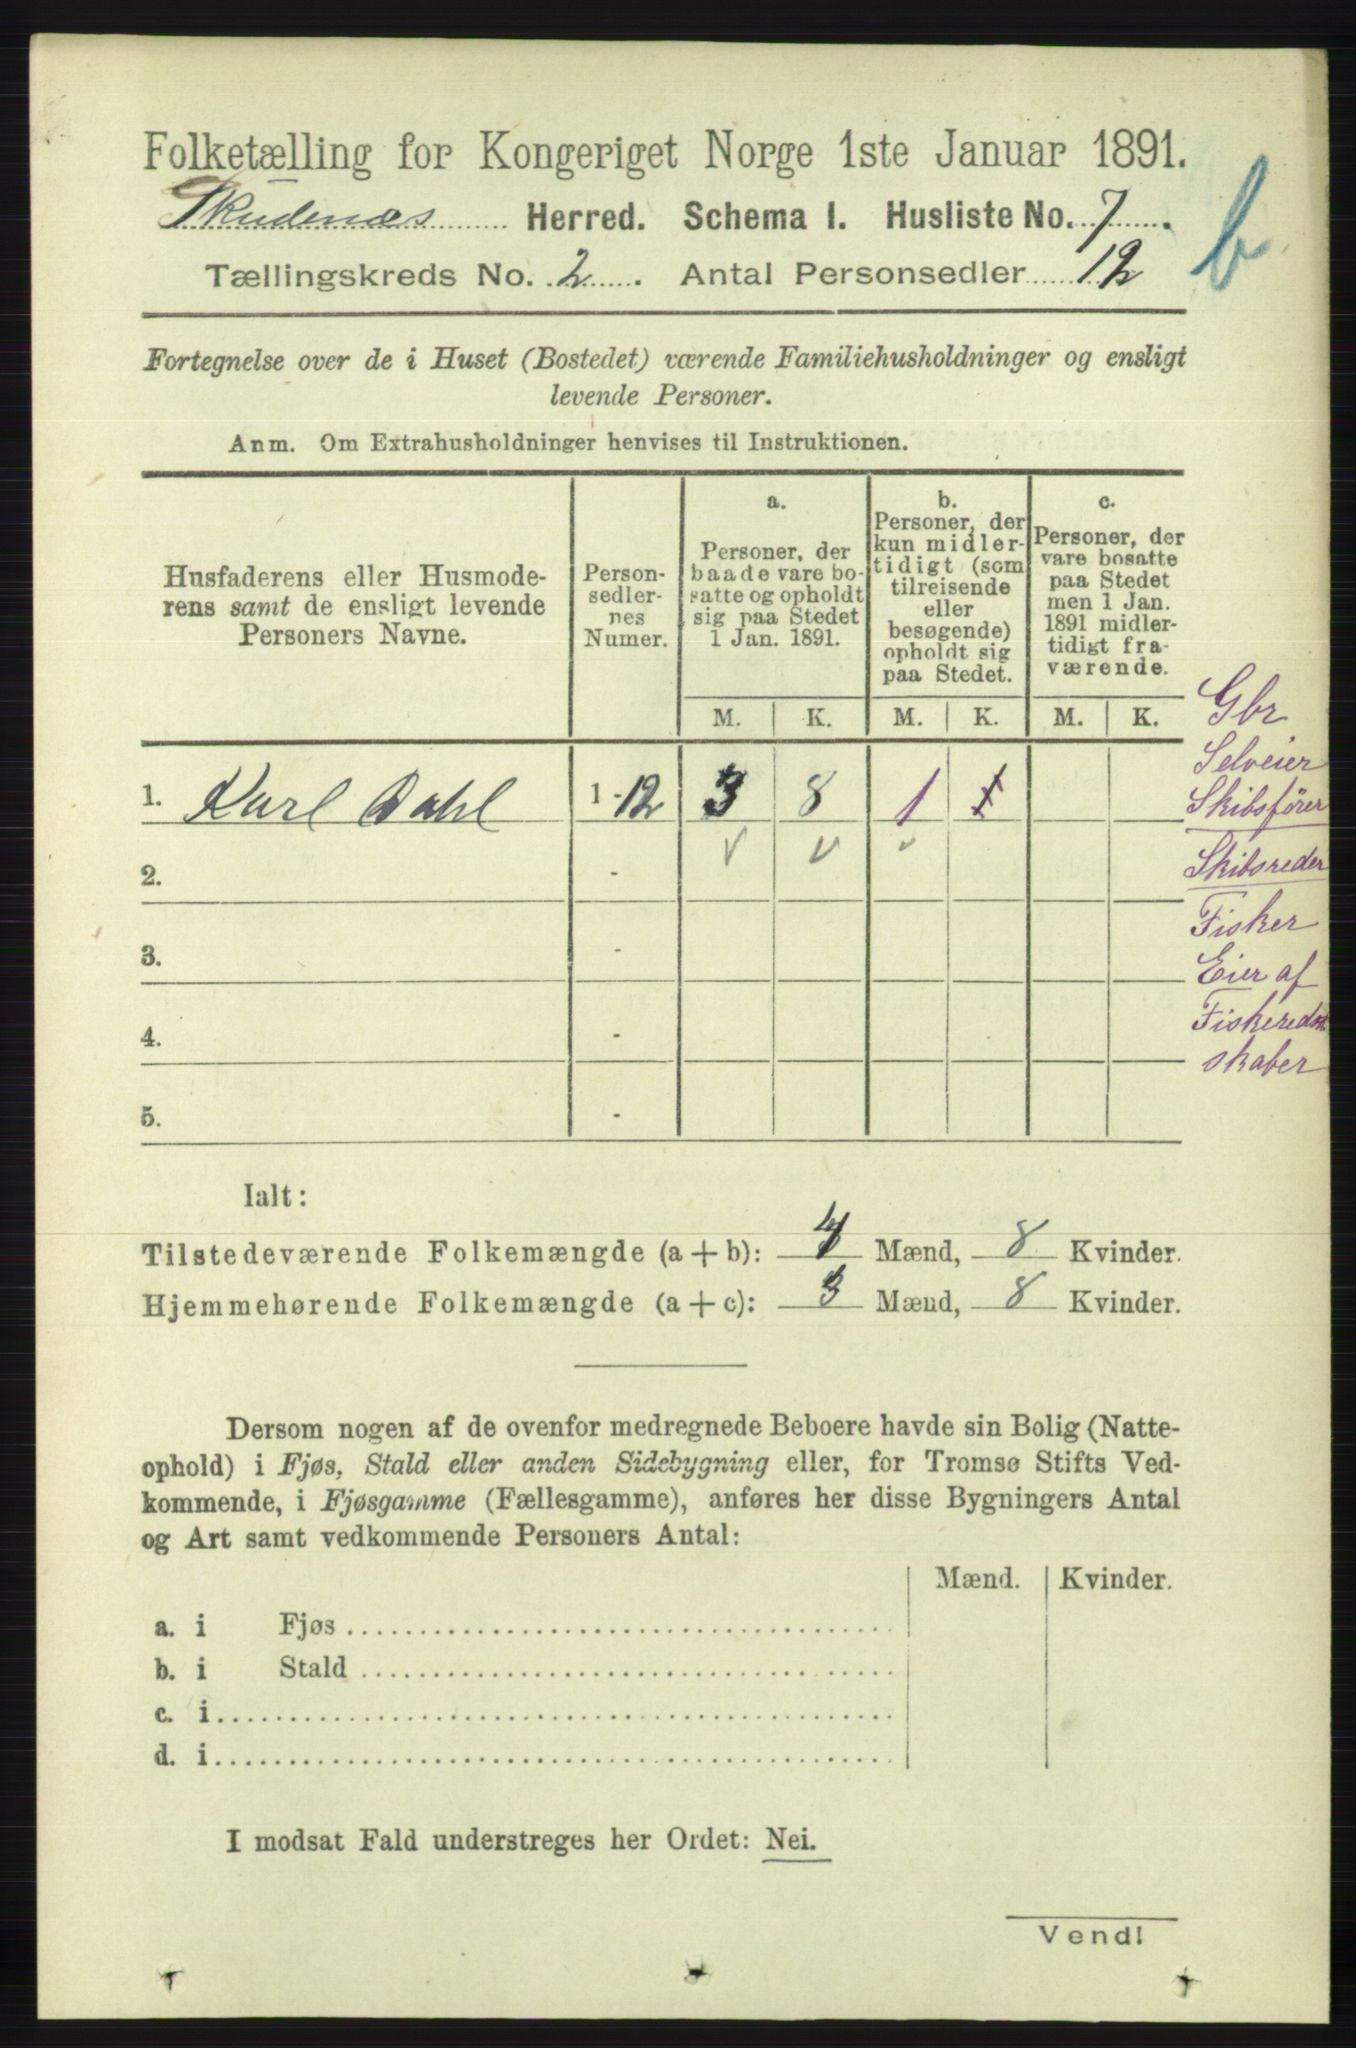 Folketælling for Kongeriget Norge 1ste Januar 1891.
Skudenæs Herred. Schema I. Husliste No. 7.
Tællingskreds No. 2. Antal Personsedler 12
b
Fortegnelse over de i Huset (Bostedet) værende Familiehusholdninger og ensligt
levende Personer.
Anm. Om Extrahusholdninger henvises til Instruktionen.
Husfaderens eller Husmode-
rens samt de ensligt levende
Personers Navne.
Person-
sedler-
nes
Numer.
a.
Personer, der
baade vare bo-
satte og opholdt
sig paa Stedet
1 Jan. 1891.
b.
Personer, der
kun midler-
tidigt (som
tilreisende
eller
besøgende)
opholdt sig
paa Stedet.
c.
Personer, der
vare bosatte
paa Stedet
men 1 Jan.
1891 midler-
tidigt fra-
værende.
M. K. M. K. M. K.
1. Karl Dahl 1 - 12 3 8 1 1
2. -
3. -
4. -
5. -
Gbr
Selveier
Skibsfører
Skibsreder
Fisker
Eier af
Fiskeredsk
skaber
Ialt:
Tilstedeværende Folkemængde (a + b): 4 Mænd, 8 Kvinder.
Hjemmehørende Folkemængde (a + c): 3 Mænd, 8 Kvinder.
Dersom nogen af de ovenfor medregnede Beboere havde sin Bolig (Natte-
ophold) i Fjøs, Stald eller anden Sidebygning eller, for Tromsø Stifts Ved-
kommende, i Fjøsgamme (Fællesgamme), anføres her disse Bygningers Antal
og Art samt vedkommende Personers Antal:
Mænd. Kvinder.
a. i Fjøs
b. i Stald
c. i
d. i
I modsat Fald understreges her Ordet: Nei.
Vend!